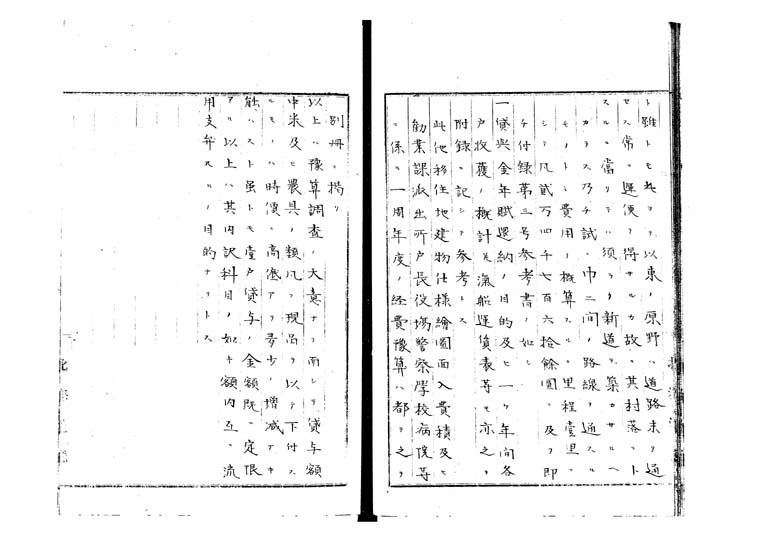 ト雖トモ此ヨリ以東ノ原野ハ道路未タ通
セス常ニ運便ヲ得サルカ故ニ其村落ニト
スルニ當リテハ須ラク新道ヲ築カサルヘ
カラス乃チ試ニ巾二間ノ路線ヲ通スル
モノトシ費用ノ概算スルニ里程壹里ニ
シテ凡貳万四千七百六拾餘圓ニ及フ即
チ付録第三号参考書ノ如シ
一貸與金年賦還納ノ目的及ヒ一ケ年間各
戸收穫ノ概計並滊船運賃表等モ亦之ヲ
附録ニ記シテ参考トス
此他移住地建物仕様繪圖面入費積及ヒ
勧業課派出所戸長役塲警察學校病院等
ニ係ル一周年度ノ経費豫算ハ都テ之ヲ
別冊ニ揭ク
以上ハ豫算調査ノ大意ナリ而シテ貸与額
中米及ヒ農具ノ類凡テ現品ヲ以テ下付ス
ルモノハ時價ニ高低アリ多少ノ増減ナキ
能ハスト虽トモ壹戸貸与ノ金額既ニ定限
アル以上ハ其内訳科目ノ如キ額内互ニ流
用支弁スルノ目的ナリトス